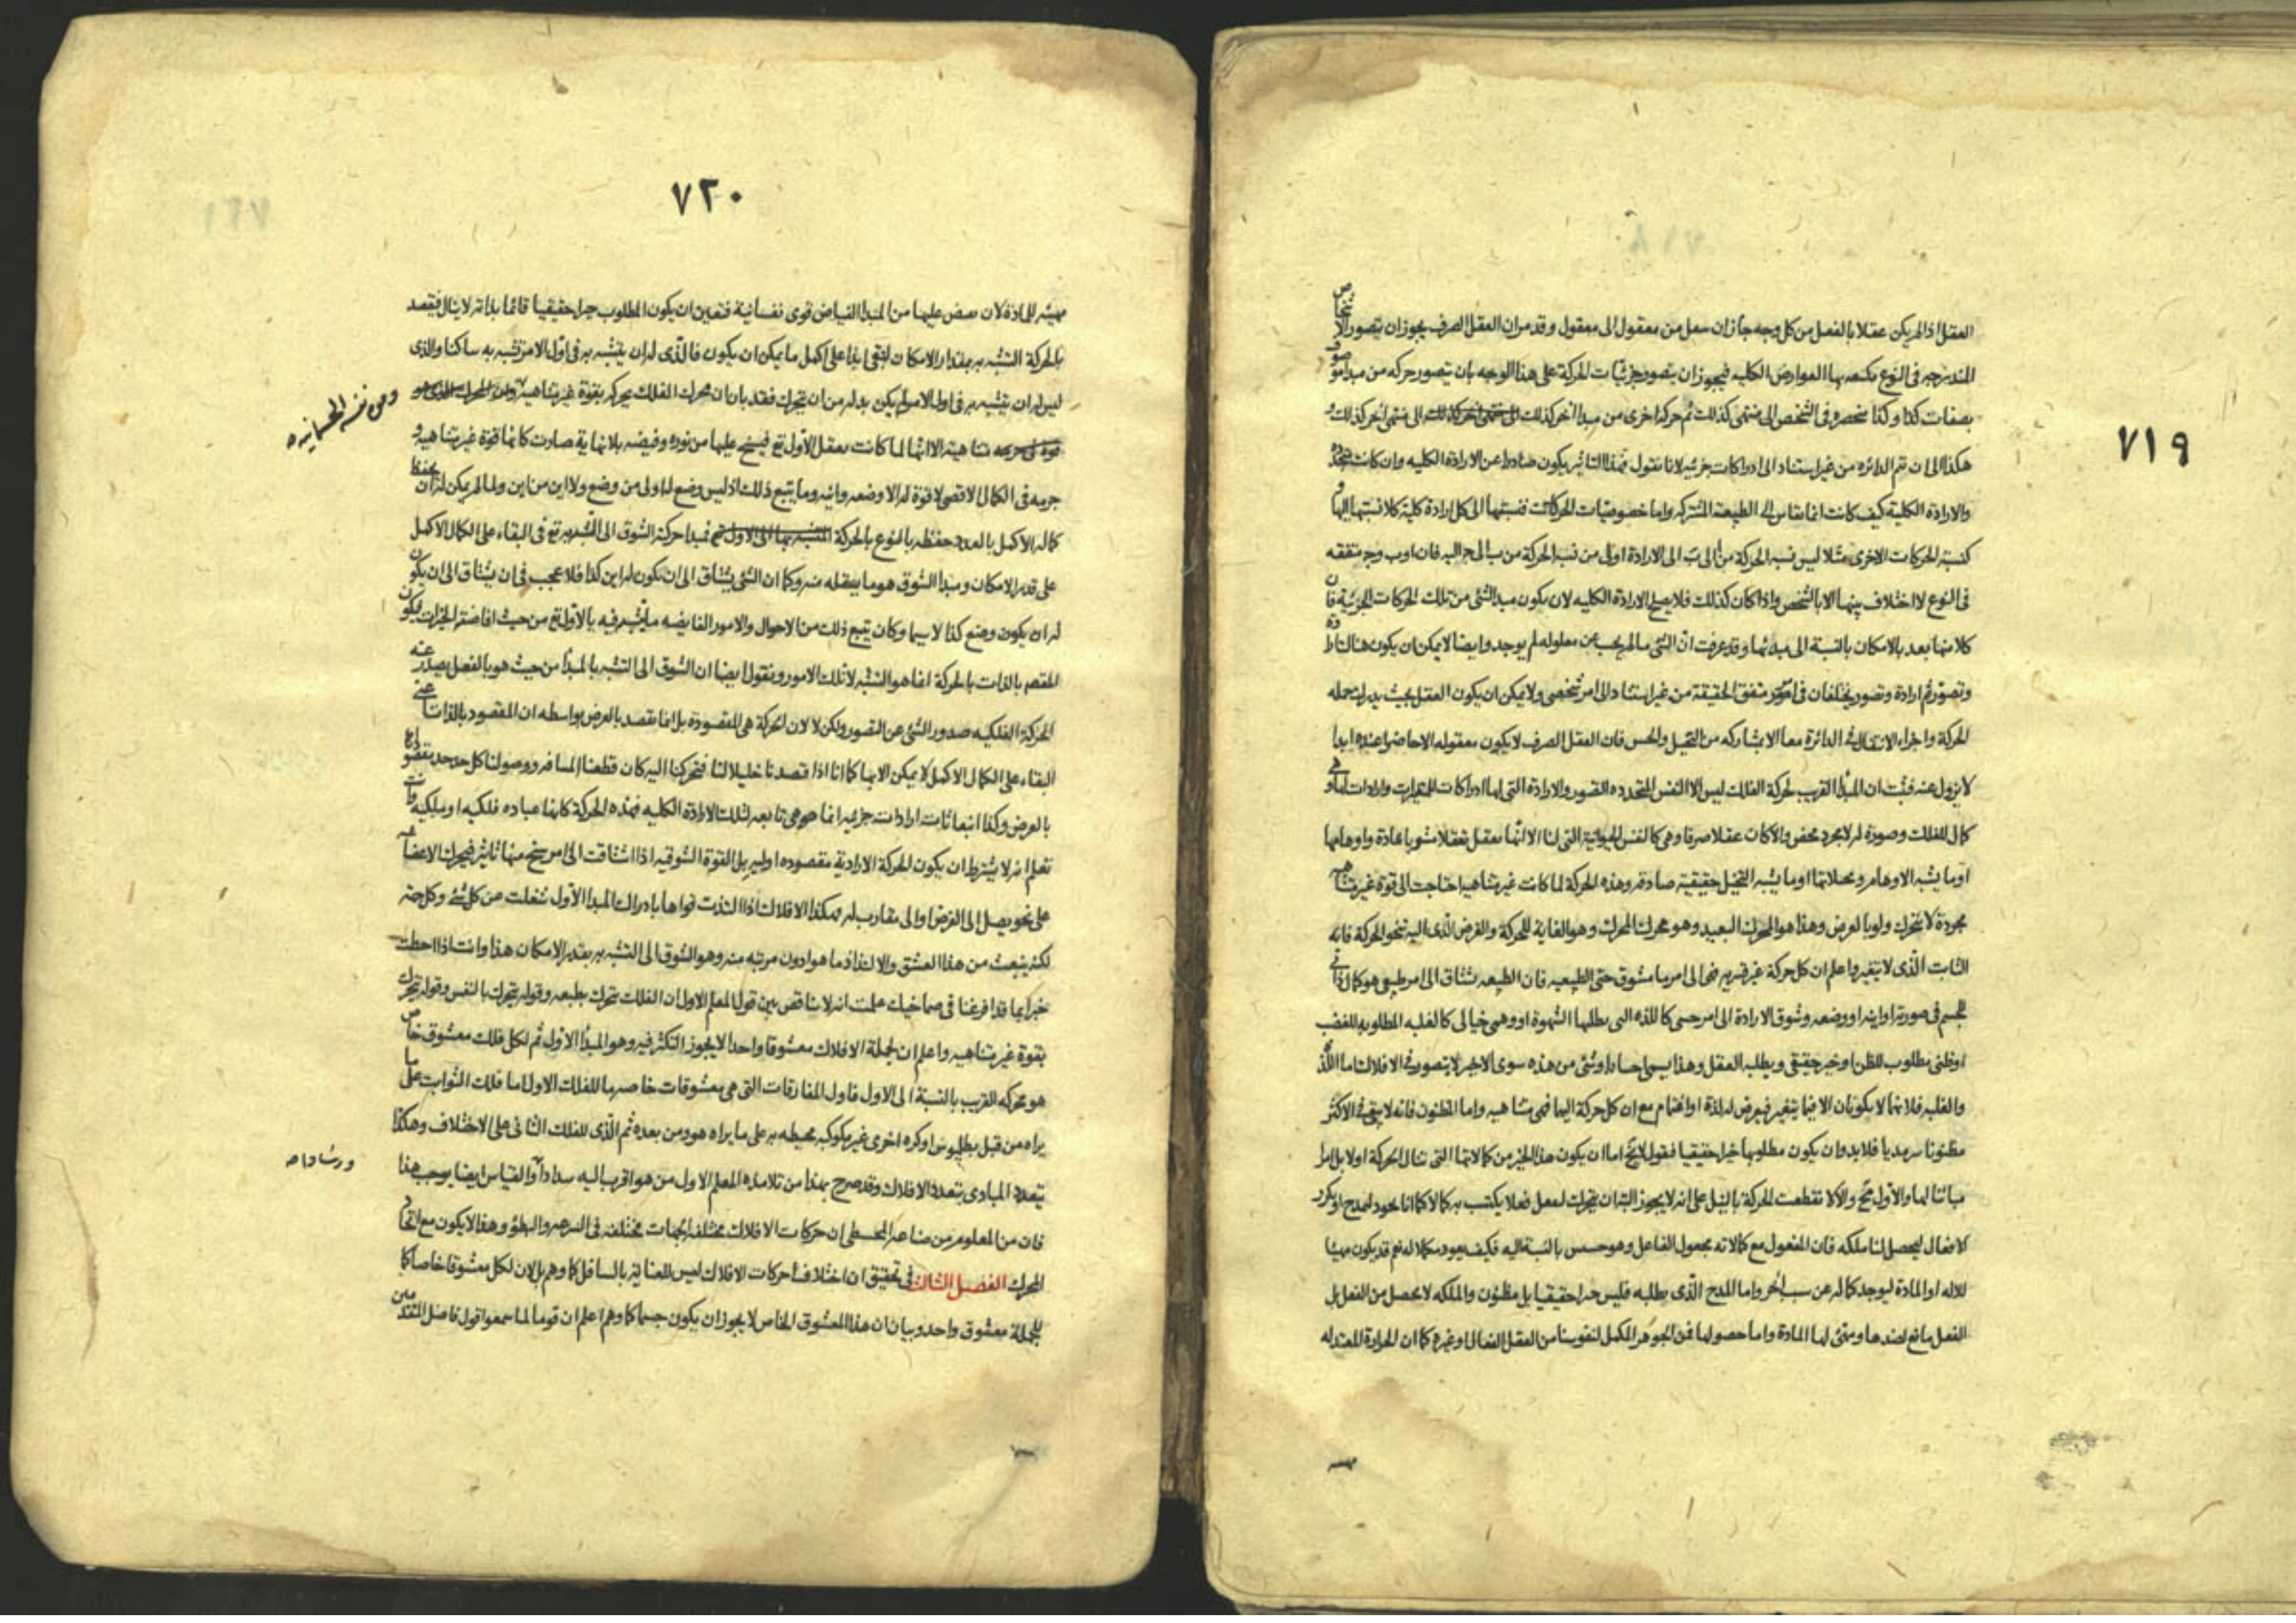 ٧١٩
العقل اذا لم يكن عقلا بالفعل من كل وجه جاز ان ينتقل من معقول الى معقول وقد مر ان العقل الصرف يجوز ان يتصور الاشخاص
المندرجه فى النوع العوارض الكليه فيجوز ان يتصور جزئيات الحركة على هذا الوجه بان يتصور حركه من مبدا موصوف
بصفات كذا وكذا منحصره فى الشخص الى منتهى كذلك ثم حركه اخرى من مبدا اخر كذلك الى منتهى اخر كذلك و
هكذا الى ان تتم الدائره من غير استناد الى ادراكات جزئيه لانا نقول هذا التاثير يكون صادرا عن الارادة الكليه وان كانت
والارادة الكلية كيف كانت انما تقاس الى الطبيعة المشتركه واما خصوصيات الحركات فنسبتها الى كل ارادة كلية كلا نسبتها اليها و
كنسبة الحركات الاخرى مثلا ليس نسبة الحركة من ا الى ب الى الارادة اولى من نسبة الحركة من ب الى ج اليه فان ا وب وج متفقه
فى النوع لا اختلاف بينها الا بالشخص واذا كان كذلك فلا يصلح الارادة الكليه لان يكون مبدا لشئ من تلك الحركات الجزئية فان
كلا منها بعد بالامكان بالنسبة الى مبدئها وقد عرفت ان الشئ ما لم يجب عن معلوله لم يوجد وايضا لا يمكن ان يكون هناك
وتصور ثم ارادة وتصور يختلفان فى امر متفق الحقيقة من غير استناد الى امر شخصى ولا يمكن ان يكون العقل بحيث
الحركة واجزاء الانتقال فى الدائرة معا الا بمشاركه من التخيل والحس فان العقل الصرف لا يكون معقوله الا حاضرا عنده ابدا
لا يزول عنه فثبت ان المبدا القريب لحركة الفلك ليس الا النفس المتجدده التصور والارادة التى لها ادراكات للمتغيرات وارادات لها وهى
كمال للفلك وصورة له لا مجرد محض والا كان عقلا صرفا وهى كالنفس الحيوانية التى لنا الا انها تعقل تعقلا مشوبا بمادة واوهامها
او ما يشبه الاوهام وتخيلاتها او ما يشبه التخيل حقيقية صادقه وهذه الحركة لما كانت غير متناهيا احتاجت الى قوة غير متناهيه
مجردة لا تتحرك ولو بالعرض وهذا هو المحرك البعيد وهو محرك المحرك وهو الغاية للحركة والغرض الذى اليه تنحو الحركة فانه
الثابت الذى لا يتغير واعلم ان كل حركة غير قسريه فهى الى امر ما مشوق حتى الطبيعيه فان الطبيعه تشتاق الى امر طبيعى هو كمال ذاتى
للجسم فى صورته او اينه او وضعه وشوق الارادة الى امر حسى كاللذه التى يطلبها الشهوة او وهمى خيالى كالغلبه المطلوبه للغضب
او ظنى مطلوب للظن او خير حقيقى ويطلبه العقل وهذا يسمى اختيارا وشئ من هذه سوى الاخير لا يتصور فى الافلاك اما اللذة
والغلبه فلانهما لا يكونان الا فيما يتغير فيعرض له لذة او اغتمام مع ان كل حركة اليها فهى متناهيه واما المظنون فانه لا يبقى فى الاكثر
مظنونا سرمديا فلا بد وان يكون مطلوبها خيرا حقيقيا فنقول لا يخ اما ان يكون هذا الخير من كمالاتها التى تنال الحركة اولا بل امرا
مباينا لها والاول مح والا لانقطعت الحركة بالنيل على انه لا يجوز البته ان يتحرك ليفعل فعلا يكتسب به كمالا كما انا نجود ليمدح او نكرر
الافعال ليحصل لنا ملكه فان المفعول مع كمالاته مجعول الفاعل وهو خسيس بالنسبة اليه فكيف يعود مكملا له نعم قد يكون مهيئا
للاله او المادة ليوجد كماله عن سبب اخر واما المدح الذى يطلبه فليس خيرا حقيقيا بل مظنون والملكه لا يحصل من الفعل بل
الفعل مانع لضدها ومهيئ لها المادة واما حصولها فمن الجوهر المكمل لنفوسنا من العقل الفعال او غيره كما ان الحرارة المعتدله
٧٢٠
مهيئه للمادة لان يفيض عليها من المبدا الفياض قوى نفسانية فتعين ان يكون المطلوب خيرا حقيقيا قائما بذاته لا ينال فيقصد
بالحركة التشبه به بمقدار الامكان لتبقى ابدا على اكمل ما يمكن ان يكون فالذى له ان يتشبه به فى اول الامر تشبه به ساكنا والذى
ليس له ان يتشبه به فى اول الامر لم يكن بد له من ان يتحرك فقد بان ان محرك الفلك يحركه بقوة غير متناهية
ومن نفسه الجسمانيه
متناهية الا انها لما كانت بعقل الاول تع فيسيح عليها من نوره وفيضه بلا نهاية صارت كانها قوة غير متناهية و
جرمه فى الكمال الاقصى لا قوة له الا وضعه واينه وما يتبع ذلك اذ ليس وضع له اولى من وضع ولا اين من اين ولما لم يكن له ان يحفظ
كماله الاكمل بالعدد حفظه بالنوع بالحركة فمبدا حركته الشوق الى التشبه به تع فى البقاء على الكمال الاكمل
على قدر الامكان ومبدا الشوق هو ما يعقله منه وكما ان الشئ يشتاق الى ان يكون له اين كذا فلا عجب فى ان يشتاق الى ان يكون
له ان يكون وضع كذا لا سيما وكان يتبع ذلك من الاحوال والامور الفايضه ما يتشبه فيه بالاول تع من حيث افاضته الخيرات فيكون
المقصود بالذات بالحركة انما هو التشبه لا تلك الامور ونقول ايضا ان الشوق الى التشبه بالمبدا من حيث هو بالفعل يصدر عنه
الحركة الفلكيه صدور الشئ عن التصور ولكن لا لان الحركة هى المقصودة بل انما تقصد بالعرض بواسطه ان المقصود بالذات اعنى
البقاء على الكمال الاكمل لا يمكن الا بها كما انا اذا قصدنا خليلا لنا فتحركنا اليه كان قطعنا المسافه ووصولنا كل حد حد مقصودا
بالعرض وكذا انبعاثات ارادات جزئيه انما هى تابعه لتلك الارادة الكليه فهذه الحركة كانها عباده فلكيه او ملكيه وانت
تعلم انه لا يشترط ان يكون الحركة الارادية مقصوده اوليه بل القوة الشوقيه اذا اشتاقت الى امر سنح منها تاثير فيحرك الاعضاء
على نحو يصل الى الغرض او الى مقارب له فهكذا الافلاك اذا التذت قواها بادراك المبدا الاول شغلت عن كل شئ وكل جهة
لكنه ينبعث من هذا العشق والالتذاذ ما هو ادون مرتبه منه وهو الشوق الى التشبه به بقدر الامكان هذا وانت اذا احطت
خبرا بما قد افرغنا فى صماخيك علمت انه لا يناقض بين قول المعلم الاول ان الفلك يتحرك بطبعه وقوله يتحرك بالنفس وقوله يتحرك
بقوة غير متناهيه واعلم ان لجملة الافلاك معشوقا واحدا لا يجوز التكثر فيه وهو المبدا الاول ثم لكل فلك معشوق خاص
هو محركه القريب بالنسبة الى الاول فاول المفارقات التى هى معشوقات خاصه ما للفلك الاول اما فلك الثوابت على ما
يراه من قبل بطليوس او كره اخرى غير مكوكبه محيطه به على ما يراه هو ومن بعده ثم الذى للفلك الثانى على الاختلاف وهكذا
يتعدد المبادى بتعدد الافلاك وقد صرح بهذا من تلامذه المعلم الاول من هو اقرب اليه سدادا والقياس ايضا يوجب هذا
ورشادا صه
فان من المعلوم من صناعة المجسطى ان حركات الافلاك مختلفه الجهات مختلفه فى السرعه والبطؤ وهذا لا يكون مع اتحاد
المحرك الفصل الثالث فى تحقيق ان اختلاف حركات الافلاك ليس للعناية بالسافل كما وهم بل لان لكل معشوقا خاصا كما
للجملة معشوق واحد وبيان ان هذا المعشوق الخاص لا يجوز ان يكون جسما كما وهم اعلم ان قوما لما سمعوا قول فاضل المتقدمين